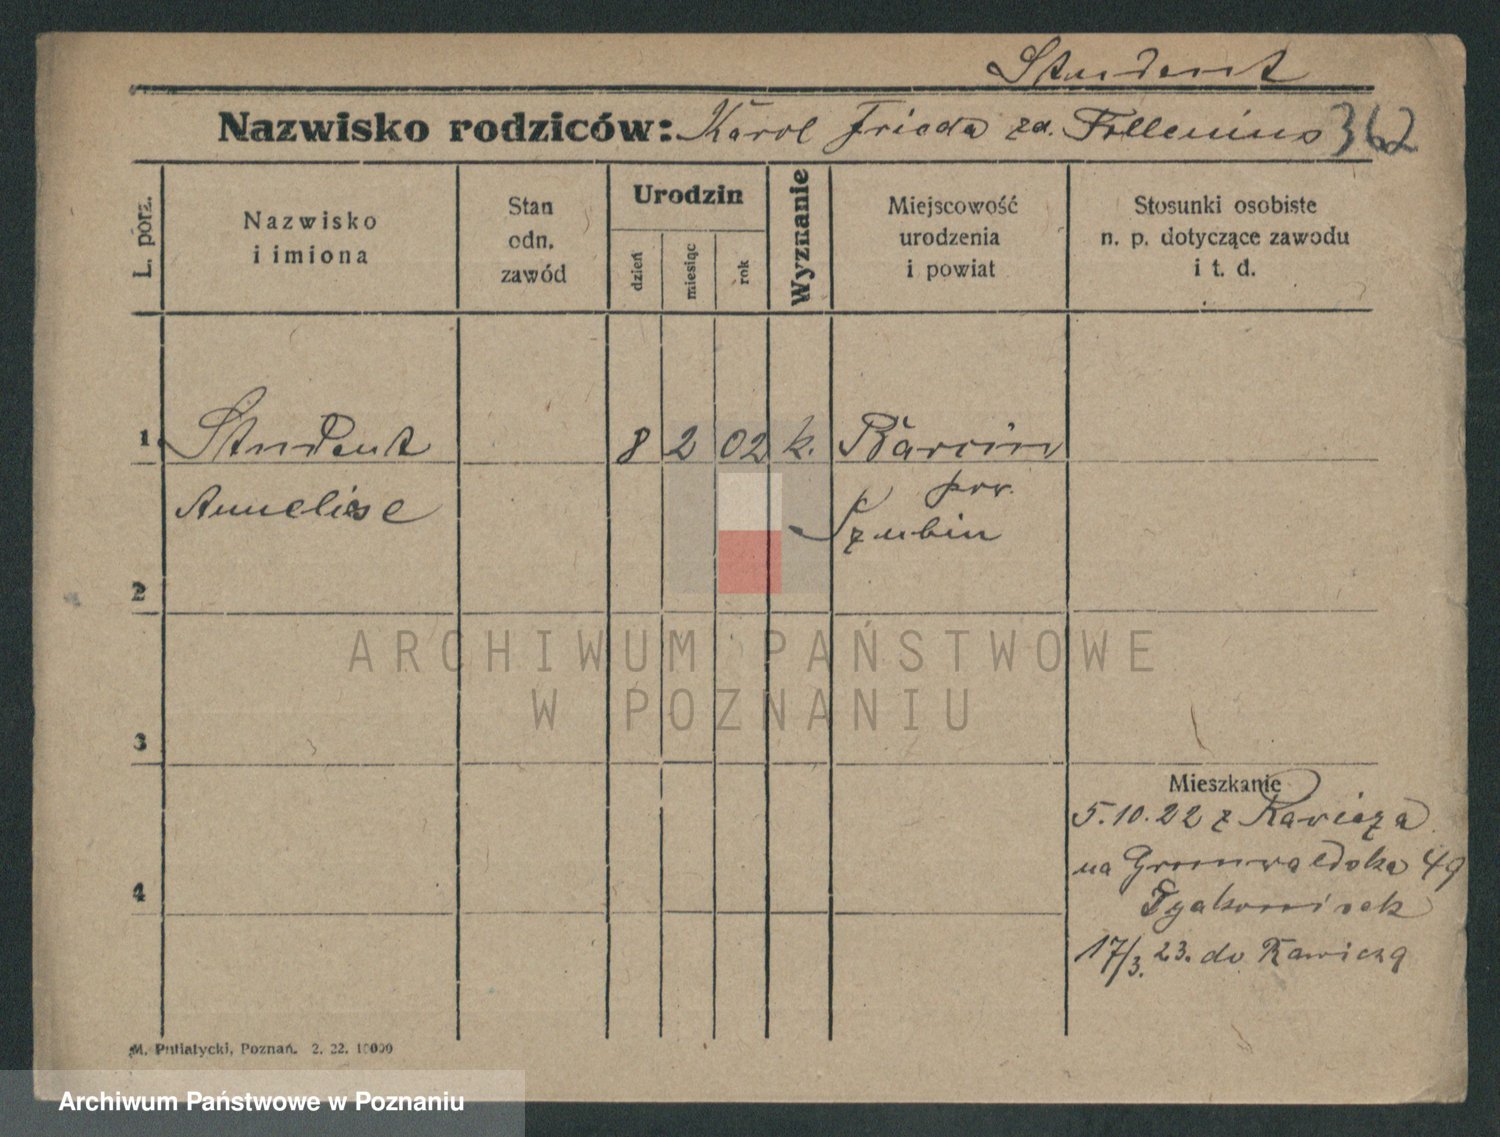 Student
Nazwisko rodziców: Karol Frieda zd. Follenius 362
L. porz.
Nazwisko
i imiona
Stan
odn.
zawód
Urodzin
dzień
miesiąc
rok
Wyznanie
Miejscowość
urodzenia
i powiat
Stosunki osobiste
n. p. dotyczące zawodu
i t. d.
1 Student 8 2 02 k. Barcin
Annelise pow.
Szubin
2
3
4
ARCHIWUM PAŃSTWOWE
W POZNANIU
Mieszkanie
5.10.22 z Rawicza
na Grunwaldska 49
17/3. 23. do Rawicza
M. Putiatycki, Poznań. 2. 22. 10000
Archiwum Państwowe w Poznaniu